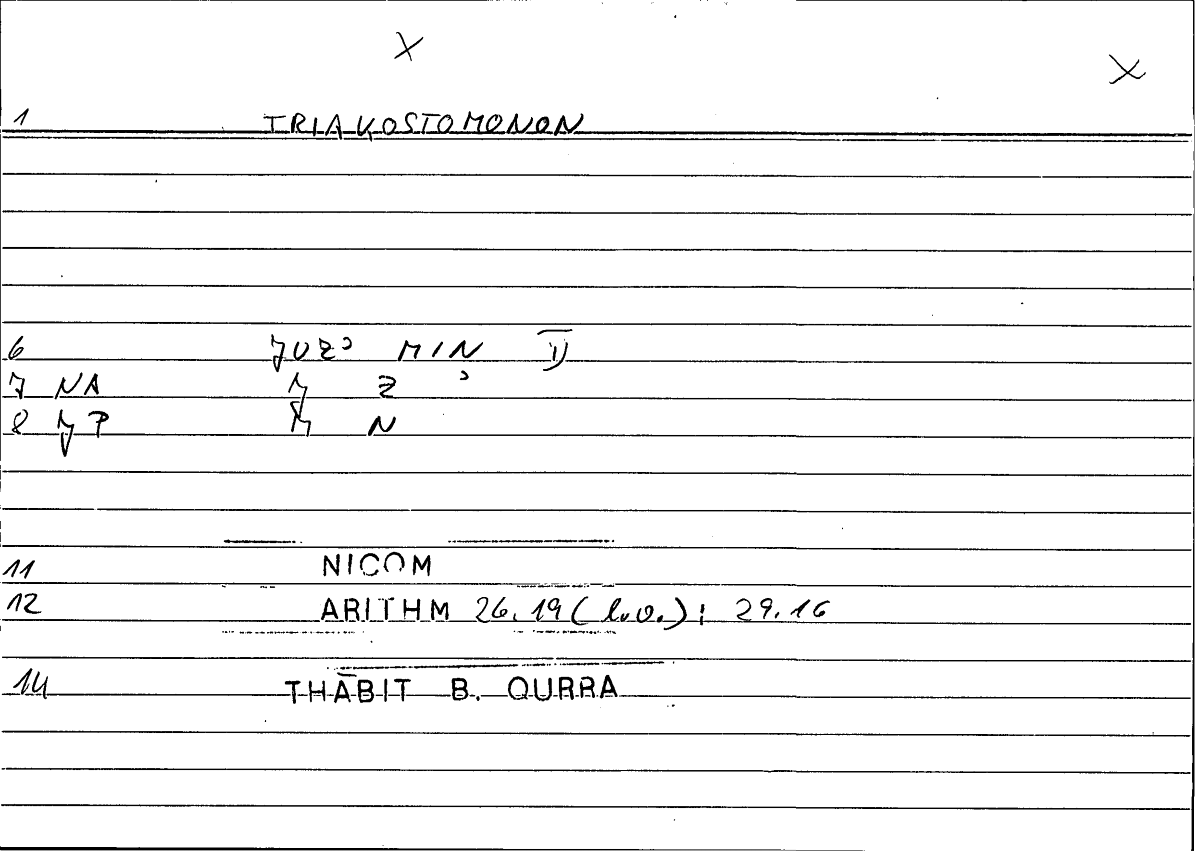 X X
1 TRIAKOSTOMONON
6 ǦUZʾ MIN
7 NA Ǧ Z ʾ
8 M N
11 NICOM
12 ARITHM 26.19 (l.v.); 29.16
14 THĀBIT B. QURRA